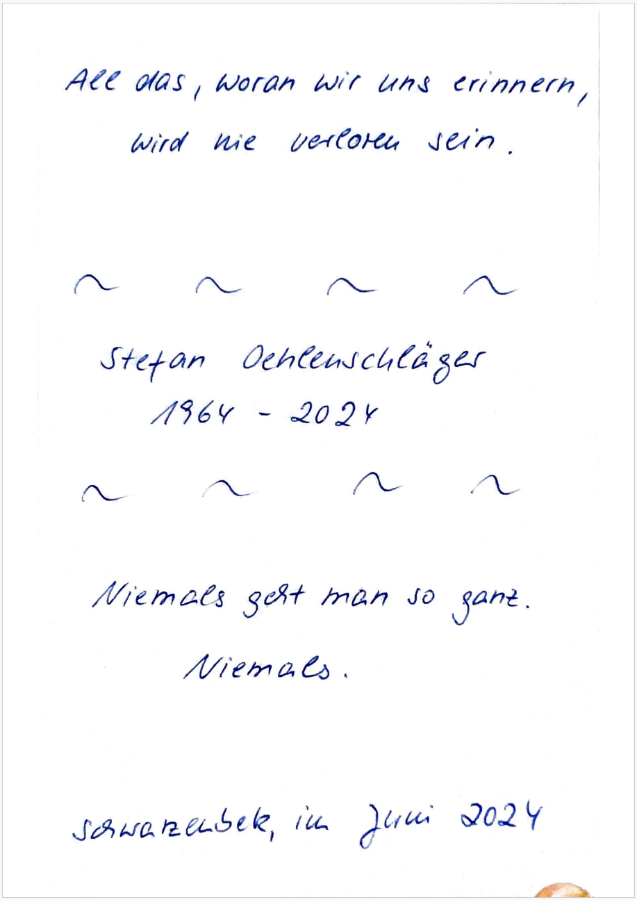 All das, woran wir uns erinnern,
wird nie verloren sein.
~ ~ ~ ~
Stefan Oehlenschläger
1964 - 2024
~ ~ ~ ~
Niemals geht man so ganz.
Niemals.
Schwarzenbek, im Juni 2024